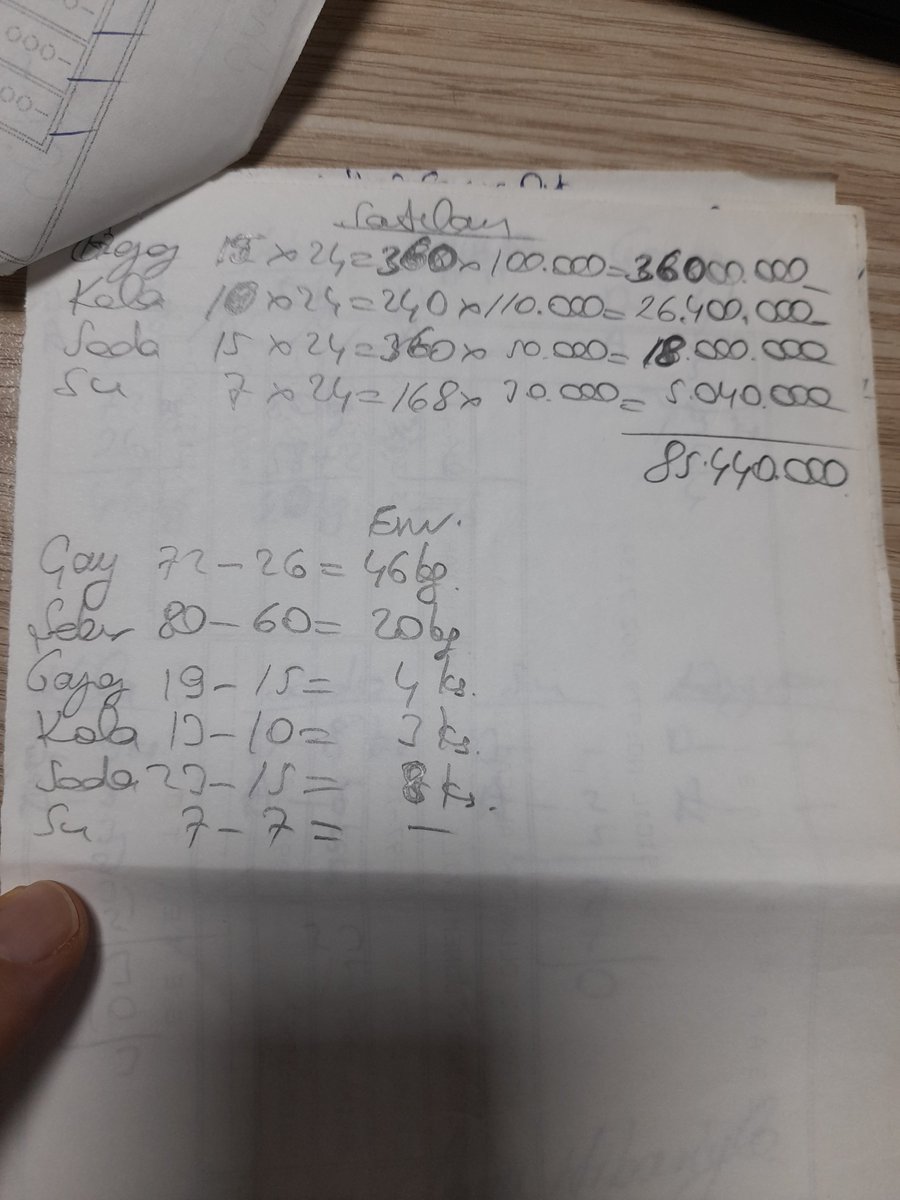 000-
00-
Satılan
15 x 24 = 360 x 100.000 = 36000.000
Kola 10 x 24 = 240 x 110.000 = 26.400.000
Soda 15 x 24 = 360 x 50.000 = 18.000.000
Su 7 x 24 = 168 x 30.000 = 5.040.000
85.440.000
Env.
Çay 72 - 26 = 46 kg.
Şeker 80 - 60 = 20 kg
19 - 15 = 4 ks.
Kola 13 - 10 = 3 ks.
Soda 23 - 15 = 8 ks.
Su 7 - 7 = —